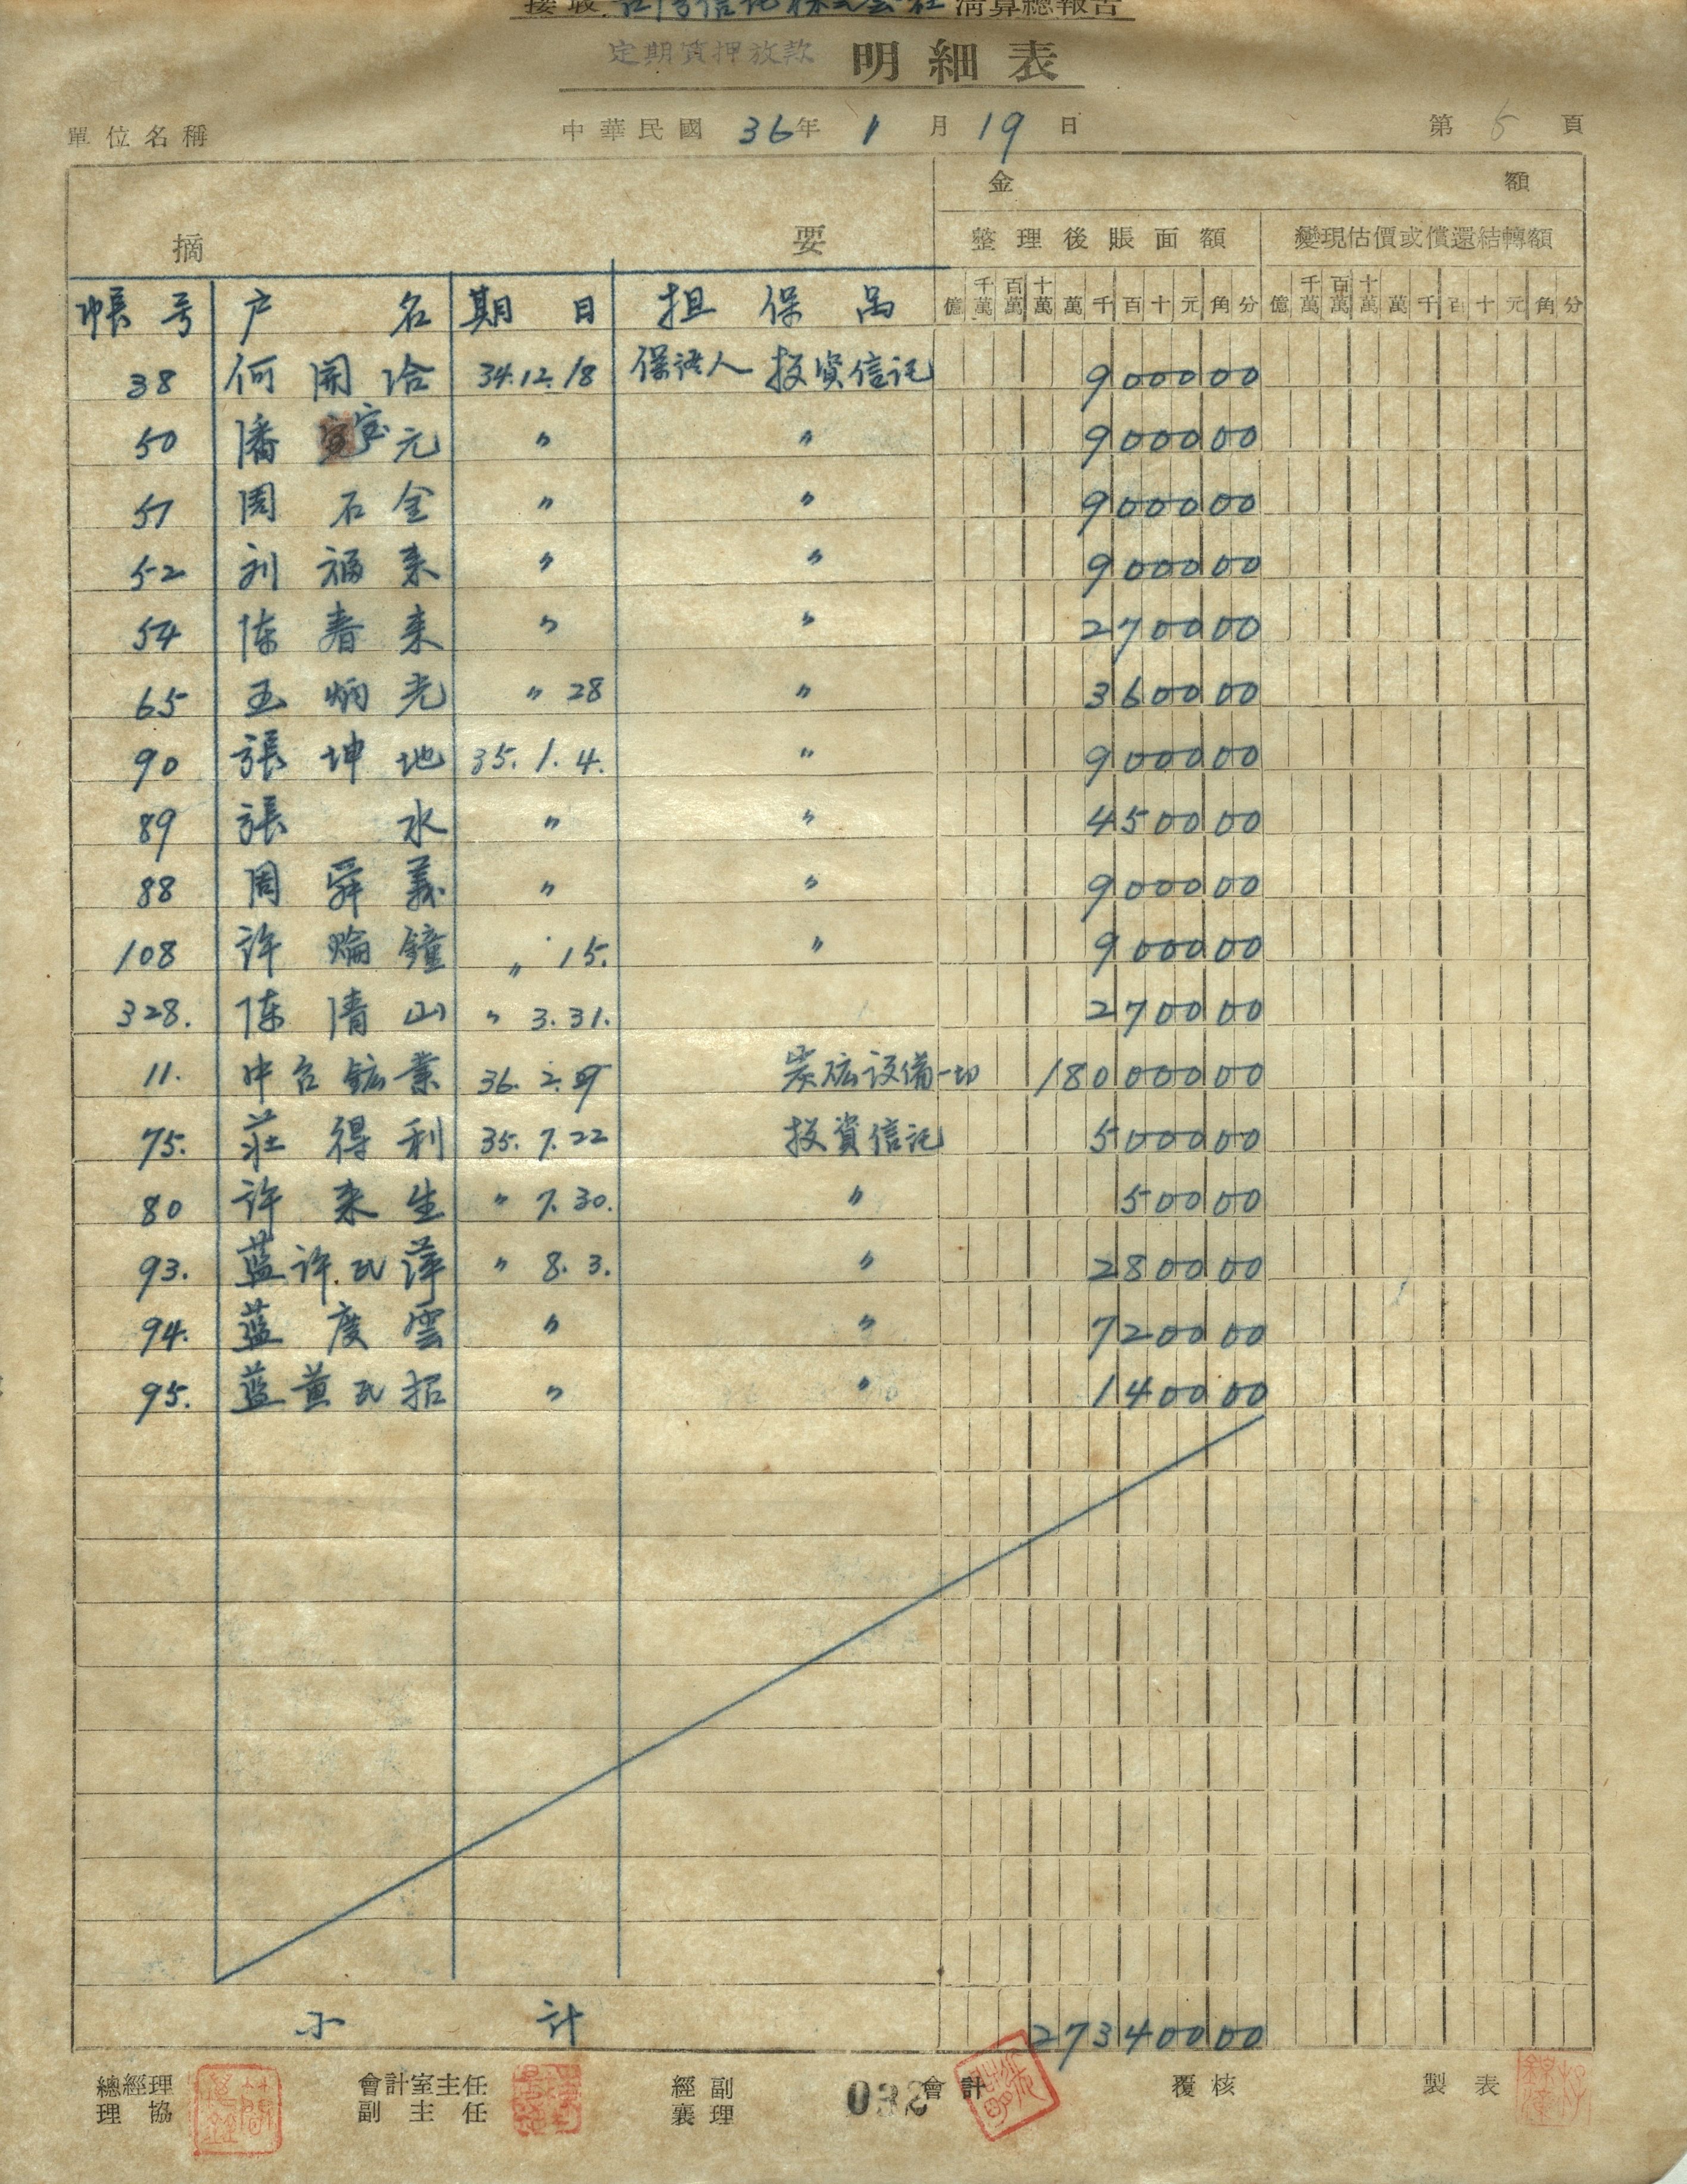 接收 台灣信託株式会社 清算總報告
定期質押放款 明細表
單位名稱 中華民國 36年 1月 19日 第 5 頁
摘 要 金 額
整理後賬面額 變現估價或償還結轉額
帳号 户名 期日 担保品 億 千萬 百萬 十萬 萬 千 百 十 元 角 分 億 千萬 百萬 十萬 萬 千 百 十 元 角 分
38 何開治 34.12.18 保證人 投資信託 900000
50 潘宝元 〃 〃 900000
51 周石金 〃 〃 900000
52 刘福来 〃 〃 900000
54 陳春来 〃 〃 270000
65 王炳光 〃 28 〃 360000
90 張坤地 35.1.4. 〃 900000
89 張水 〃 〃 450000
88 周舜義 〃 〃 900000
108 許鐘 〃 15. 〃 900000
328. 陳清山 〃 3.31. 270000
11. 中台鉱業 36.2. 炭砿設備一切 18000000
75. 莊得利 35.7.22 投資信託 500000
80 許来生 〃 7.30. 〃 50000
93. 蓝許氏萍 〃 8.3. 〃 280000
94. 蓝度雲 〃 〃 720000
95. 蓝黄氏招 〃 〃 140000
小計 27340000
總經理 協理 會計室主任 副主任 經副襄理 032 會計 覆核 製表